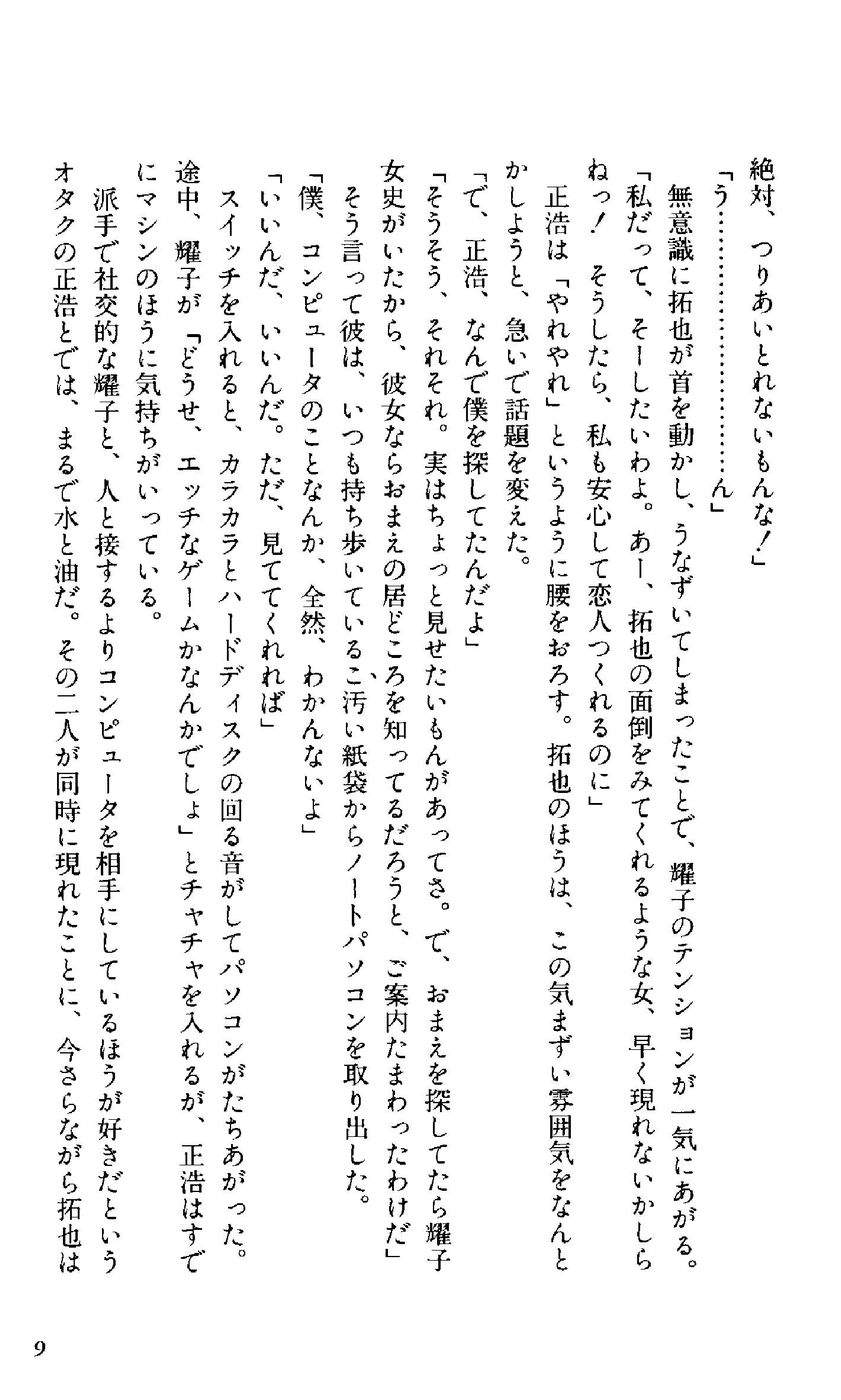 絶対、つりあいとれないもんな！」
「う…………………………ん」
無意識に拓也が首を動かし、うなずいてしまったことで、耀子のテンションが一気にあがる。
「私だって、そーしたいわよ。あー、拓也の面倒をみてくれるような女、早く現れないかしら
ねっ！　そうしたら、私も安心して恋人つくれるのに」
正浩は「やれやれ」というように腰をおろす。拓也のほうは、この気まずい雰囲気をなんと
かしようと、急いで話題を変えた。
「で、正浩、なんで僕を探してたんだよ」
「そうそう、それそれ。実はちょっと見せたいもんがあってさ。で、おまえを探してたら耀子
女史がいたから、彼女ならおまえの居どころを知ってるだろうと、ご案内たまわったわけだ」
そう言って彼は、いつも持ち歩いているこ汚い紙袋からノートパソコンを取り出した。
「僕、コンピュータのことなんか、全然、わかんないよ」
「いいんだ、いいんだ。ただ、見ててくれれば」
スイッチを入れると、カラカラとハードディスクの回る音がしてパソコンがたちあがった。
途中、耀子が「どうせ、エッチなゲームかなんかでしょ」とチャチャを入れるが、正浩はすで
にマシンのほうに気持ちがいっている。
派手で社交的な耀子と、人と接するよりコンピュータを相手にしているほうが好きだという
オタクの正浩とでは、まるで水と油だ。その二人が同時に現れたことに、今さらながら拓也は
9